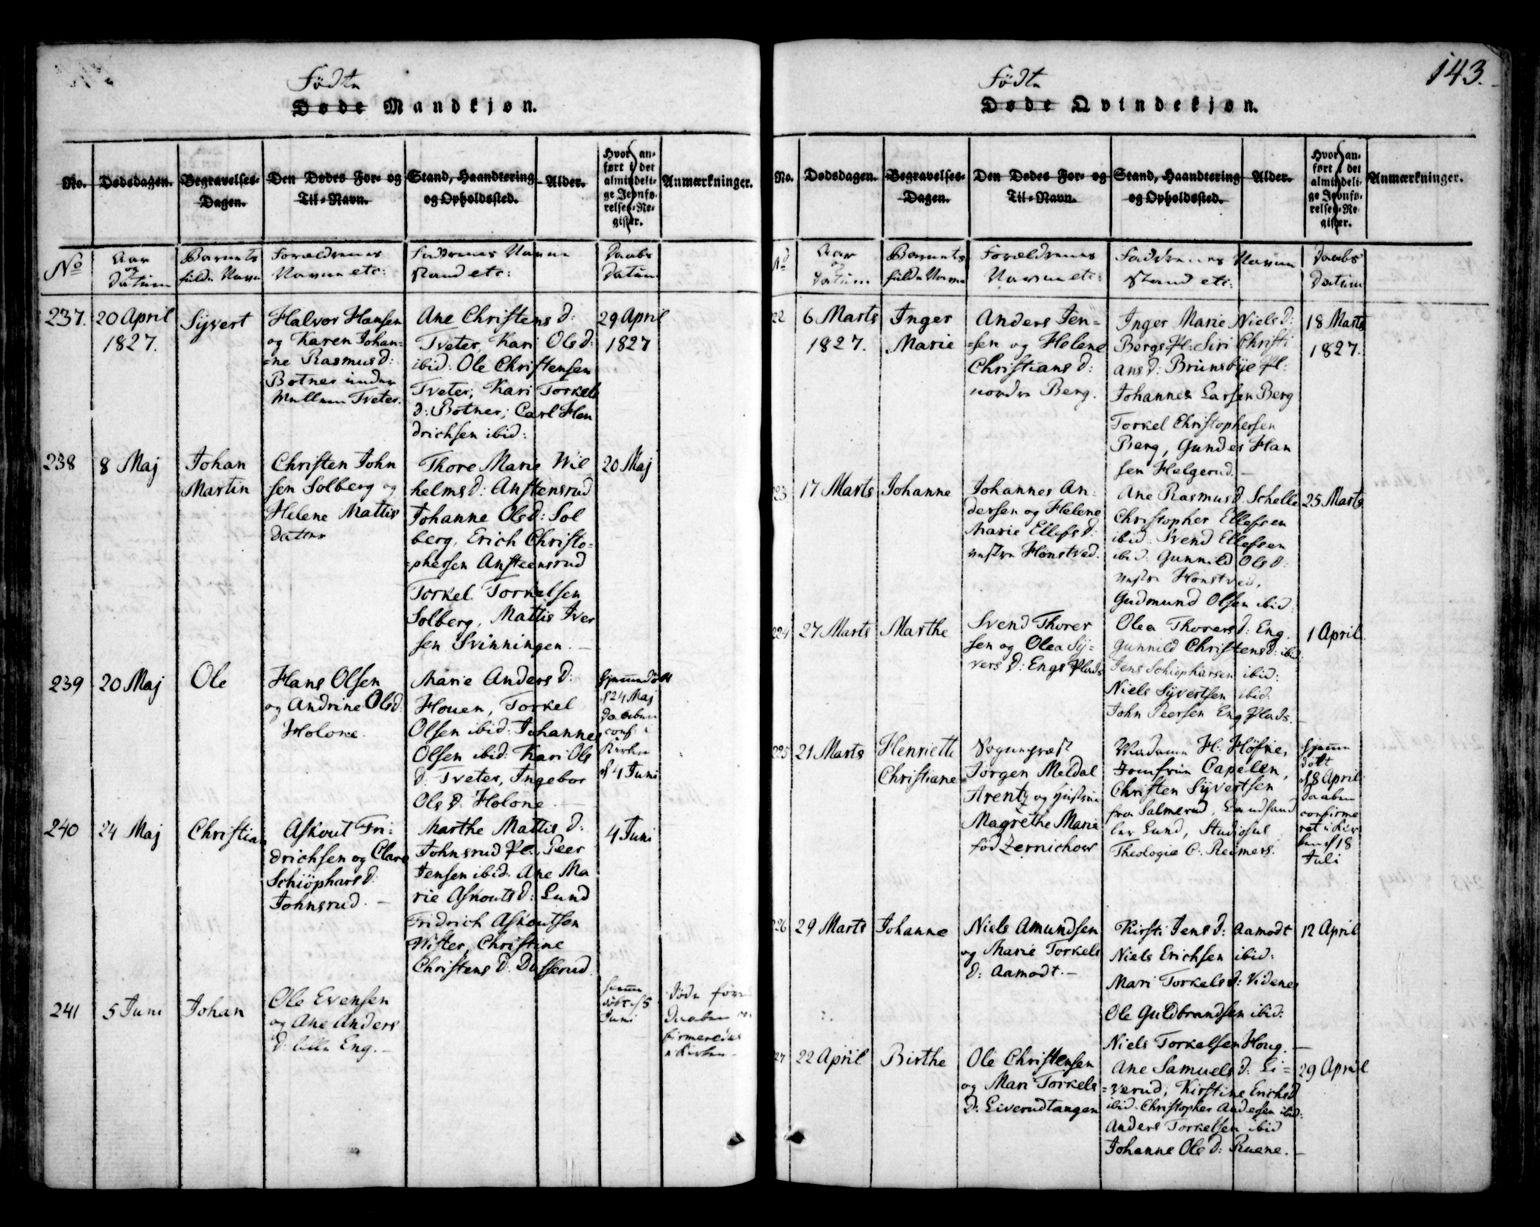 143.
Födte
Døde Mandkjøn.
No.
Dødsdagen.
Begravelses-
Dagen.
Den Dødes For- og
Til-Navn.
Stand, Haandtering
og Opholdssted.
Alder.
Hvor an-
ført i det
almindeli-
ge Jevnfø-
relses-Re-
gister.
Anmærkninger.
No
Aar
og
Datum
Barnets
fulde Navn
Forældrenes
Navne etc:
Faddernes Navne
Stand etc:
Daabs
Datum
237.
20 April
1827.
Syvert
Halvor Hansen
og Karen Johan-
ne Rasmusd:
Botner under
Mellem Tveter.
Ane Christensd:
Tveter, Kari Olsd:
ibid: Ole Christensen
Tveter, Kari Torkels
d: Botner, Carl Hen
drichsen ibid:
29 April
1827
238
8 Maj
Johan
Martin
Christen John
sen Solberg og
Helene Mattis
datter
Thore Marie Wil
helmsd: Anstensrud
Johanne Olsd: Sol
berg, Erich Christo-
phersen Ansteensrud
Torkel Torkelsen
Solberg, Mattis Iver
sen Svinningen.
20 Maj
239
20 Maj
Ole
Hans Olsen
og Andrine Olsd:
Holone.
Marie Andersd:
Houen, Torkel
Olsen ibid: Johannes
Olsen ibid: Kari Ols
d: Tveter, Ingebor
Olsd: Holone.
hjemmedöbt
d 24 Maj
Daaben
conf: i
Kirken
d 4 Juni
240
24 Maj
Christian
Askout Fri-
drichsen og Clare
Schiöpharsd:
Johnsrud.
Marthe Mattisd:
Johnsrud Pl., Peer
Jensen ibid: Ane Ma
rie Askoutsd: Lund
Fridrich Askoutson
Nister, Christine
Christensd: Dusserud
4 Juni
241
5 Juni
Johan
Ole Evensen
og Ane Anders
d: lille Eng.
hjemme
döbt d 5
Juni
Døde för
Daaben
firmeredes
i Kirken
Födte
Døde Qvindekjøn.
No.
Dødsdagen.
Begravelses-
Dagen.
Den Dødes For- og
Til-Navn.
Stand, Haandtering
og Opholdssted.
Alder.
Hvor an-
ført i det
almindeli-
ge Jevnfø-
relses-Re-
gister.
Anmærkninger.
No
Aar
og
Datum
Barnets
fulde Navn
Forældrenes
Navne etc:
Faddernes Navne
Stand etc:
Daabs
Datum
22
6 Marts
1827.
Inger
Marie
Anders Jen-
sen og Helene
Christiansd:
nordre Berg.
Inger Marie Nielsd:
Bergs Pl: Siri Christi
ansd: Brunsbye Pl:
Johannes Larsen Berg
Torkel Christophersen
Berg, Gunder Han
sen Helgerud.
18 Marts
1827.
23
17 Marts
Johanne
Johannes An-
dersen og Helene
Marie Ellefsd:
vestre Honstved.
Ane Rasmusd: Schelle
Christopher Ellefsen
ibid: Svend Ellefsen
ibid: Gunnild Olsd:
vestre Honstved,
Gudmund Olsen ibid
25 Marts
224
27 Marts
Marthe
Svend Thorer
sen og Olea Sy-
versd: Engs Plads
Olea Thorersd: Eng.
Gunnild Christensd: ibid:
Jens Schiopharsen ibid:
Niels Syvertsen ibid:
John Peersen Eng Plads.
1 April
225
21 Marts
Henriette
Christiane
Sogneprest
Jörgen Meldal
Arentz og Hustrue
Magrethe Marie
fød Zernichow
Madame H: Höfne,
Jomfrue Capelen,
Christen Syvertsen
fra Salmerud, Landhand
ler Lund, Studiosus
Theologiæ C: Reimers.
hjemme
döbt
d 8 April
Daaben
confirme
ret i Kir
ken d 18
Juli
226
29 Marts
Johanne
Niels Amundsen
og Marie Torkels
d: Aamodt.
Kirsti Jensd: Aamodt
Niels Erichsen ibid:
Mari Torkelsd: Videnes
Ole Guldbrandsen ibid:
Niels Torkelsen Houg.
12 April
27
22 April
Birthe
Ole Christensen
og Mari Torkels
d: Liverudtangen
Ane Samuelsd: Li-
verud, Kirstine Erichsd
ibid: Christopher Andersen ibid:
Anders Torkelsen ibid
Johanne Olsd: Ruene.
29 April